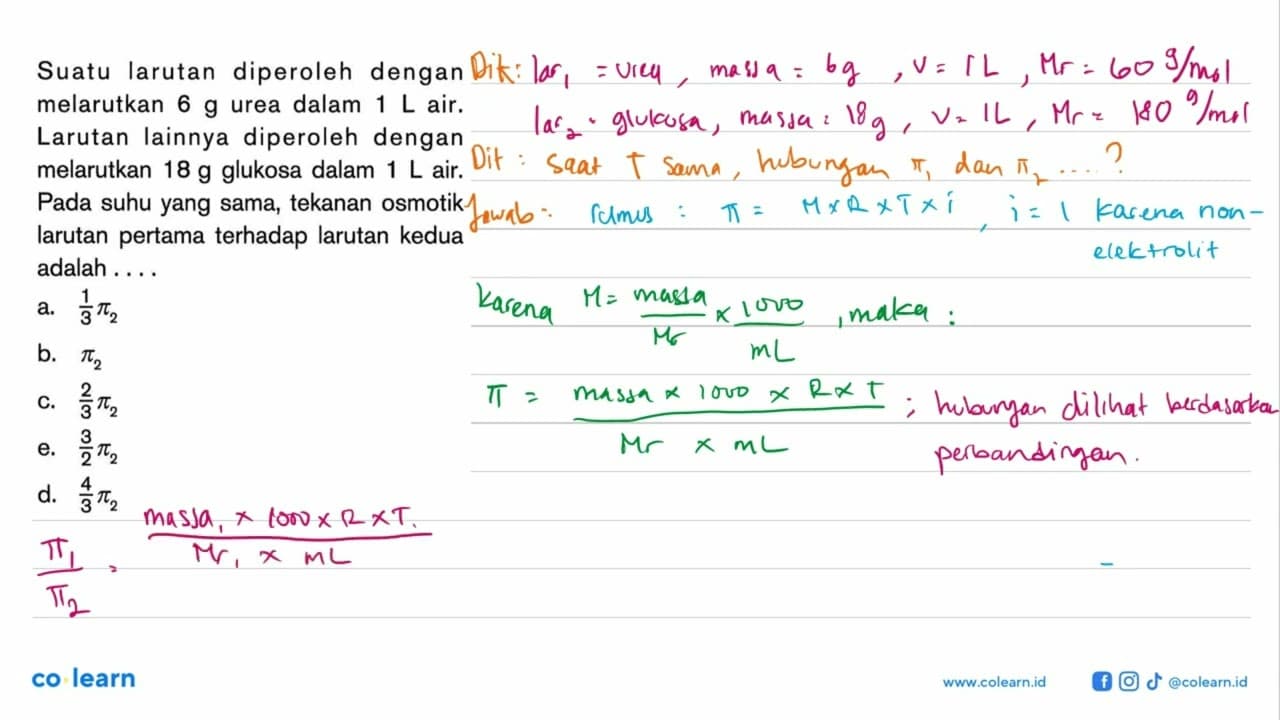 Suatu larutan diperoleh dengan
melarutkan 6 g urea dalam 1 L air.
Larutan lainnya diperoleh dengan
melarutkan 18 g glukosa dalam 1 L air.
Pada suhu yang sama, tekanan osmotik
larutan pertama terhadap larutan kedua
adalah . . . .
a. 1/3 π₂
b. π₂
c. 2/3 π₂
e. 3/2 π₂
d. 4/3 π₂
Dik: lar₁ = urea, massa = 6g, V = 1 L, Mr = 60 g/mol
lar₂ = glukosa, massa = 18 g, V = 1L, Mr = 180 g/mol
Dit : saat T sama, hubungan π₁ dan π₂ ....?
Jawab : rumus : π = M x R x T x i, i = 1 karena non-
elektrolit
karena M = massa/Mr x 1000/mL, maka :
π = massa x 1000 x R x T / Mr x mL ; hubungan dilihat berdasarkan
perbandingan.
π₁/π₂ = massa₁ x 1000 x R x T / Mr₁ x mL
co learn
www.colearn.id
@colearn.id